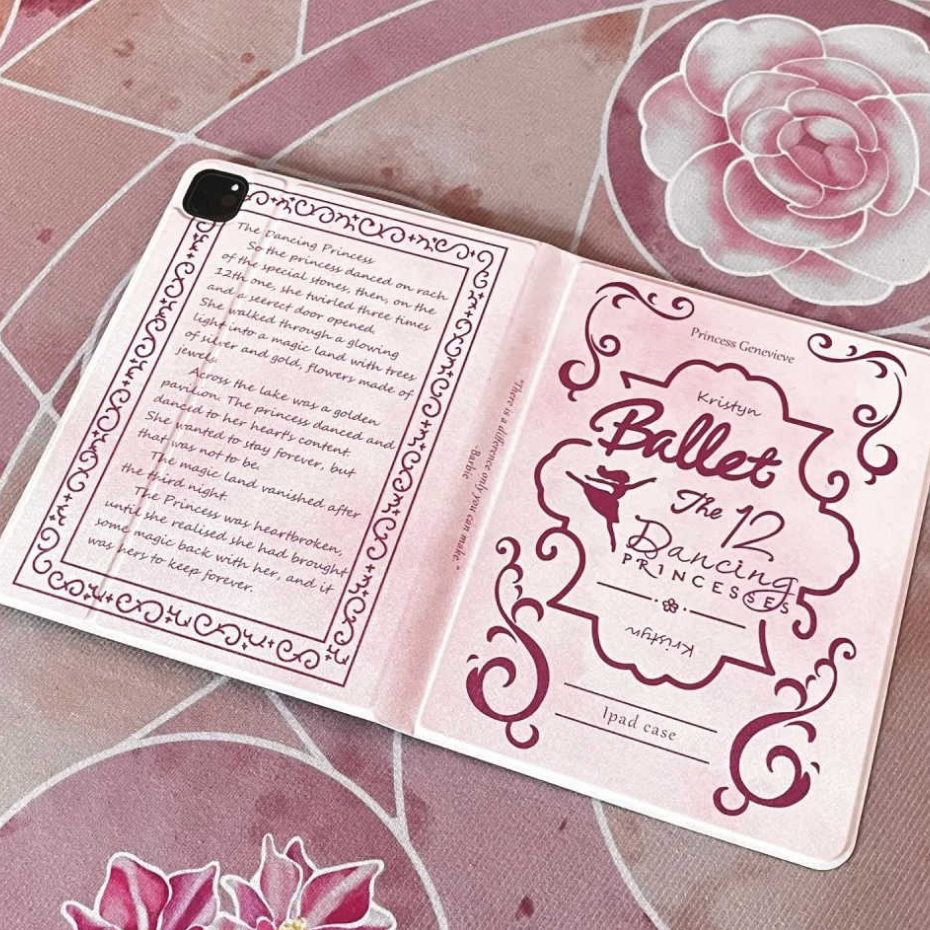 The Dancing Princess
So the princess danced on rach
of the special stones, then, on the
12th one, she twirled three times
and a seerect door opened.
She walked through a glowing
light into a magic land with trees
of silver and gold, flowers made of
jewels.
Across the lake was a golden
pavilion. The princess danced and
danced to her hearts content.
She wanted to stay forever, but
that was not to be.
The magic land vanished after
the third night.
The Princess was heartbroken,
until she realised she had brought
some magic back with her, and it
was hers to keep forever.
"There is a difference only you can make."
-Barbie
Princess Genevieve
Kristyn
Ballet
The 12
Dancing
PRINCESSES
Kristyn
Ipad case